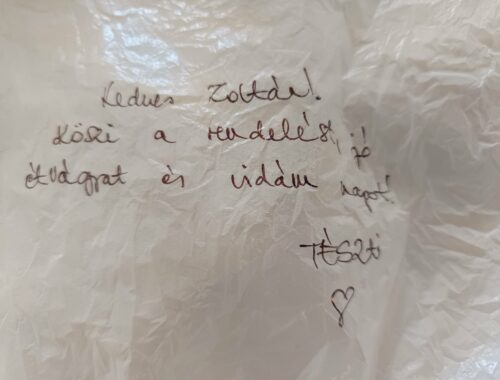 Kedves Zoltán!
Köszi a rendelést, jó
étvágyat és vidám napot!
TÉSZTi
♡